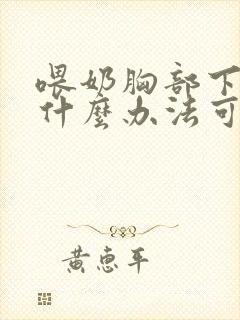 喂奶胸部下
什麼办法可
黄惠平